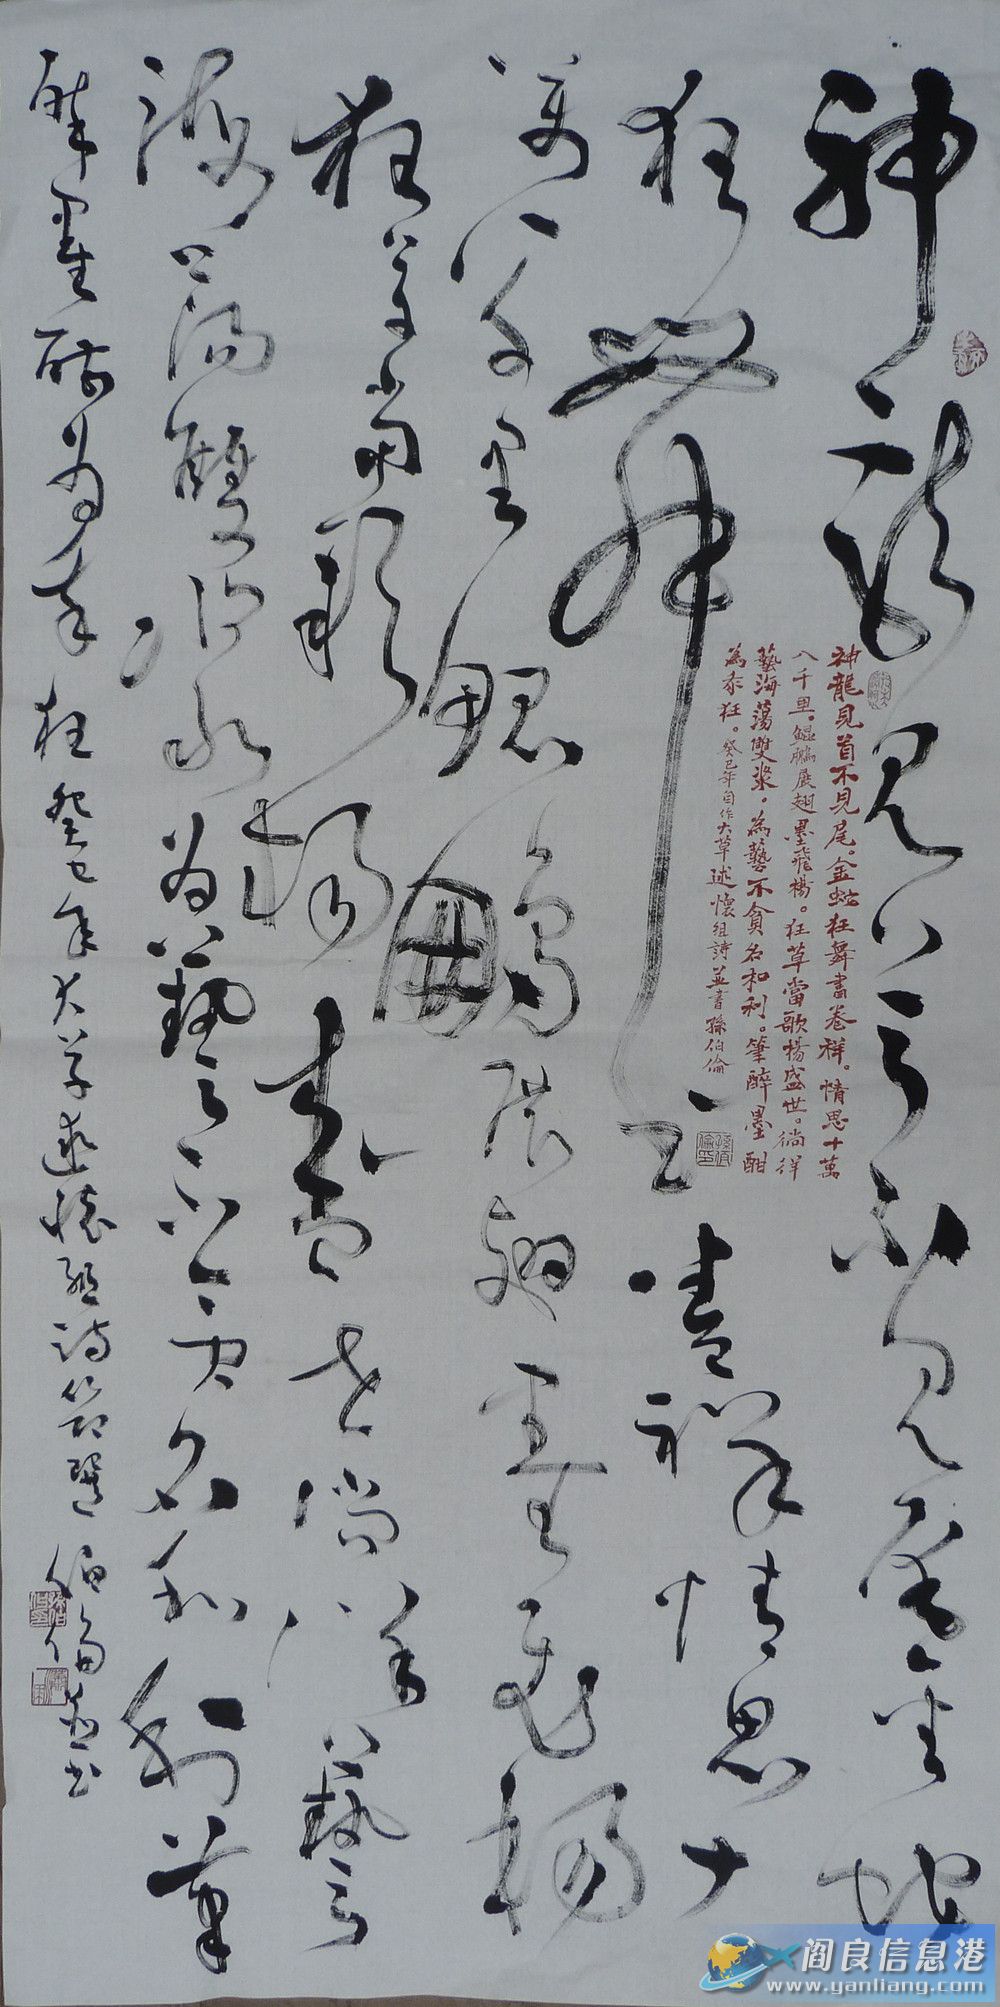 神龍見首不見尾金蛇
狂舞書卷祥情思十
萬八千里鯤鵬展翅墨飛揚
狂草當歌揚盛世徜徉藝
海蕩雙槳為藝不貪名和利筆
醉墨酣為狂 癸巳年大草述懷組詩節選 伯倫並書
神龍見首不見尾。金蛇狂舞書卷祥。情思十萬
八千里。鯤鵬展翅墨飛揚。狂草當歌揚盛世。徜徉
藝海蕩雙槳。為藝不貪名和利。筆醉墨酣
為狂。癸巳年自作大草述懷組詩並書孫伯倫
阎良信息港
www.yanliang.com